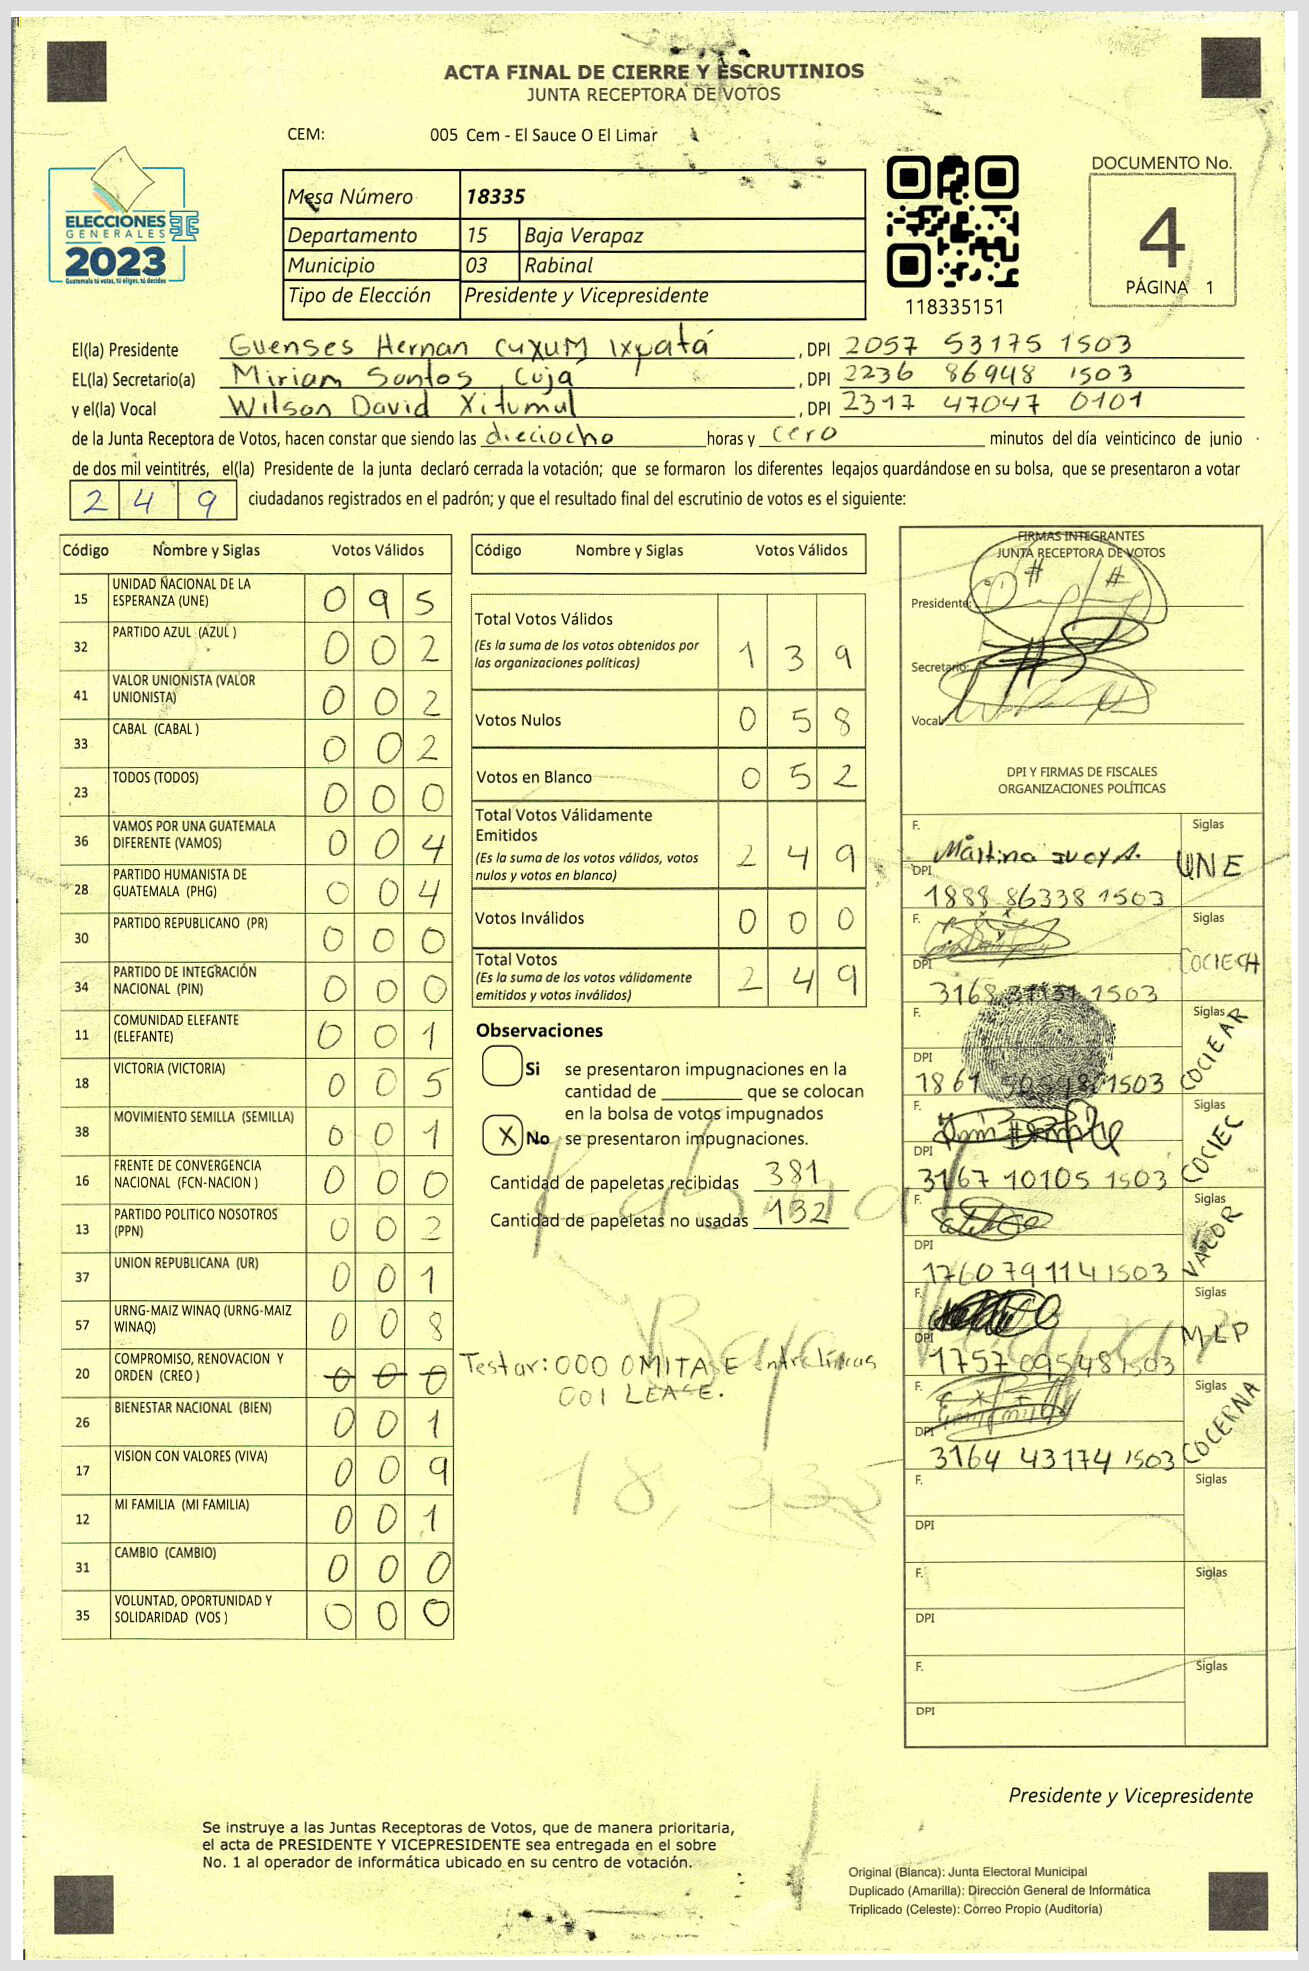 ACTA FINAL DE CIERRE Y ESCRUTINIOS
JUNTA RECEPTORA DE VOTOS
CEM: 005 Cem - El Sauce O El Limar
ELECCIONES
GENERALES
2023
Guatemala tú votas, tú eliges, tú decides
Mesa Número 18335
Departamento 15 Baja Verapaz
Municipio 03 Rabinal
Tipo de Elección Presidente y Vicepresidente
118335151
DOCUMENTO No.
4
PÁGINA 1
El(la) Presidente Guenses Hernan Cuxum Ixpatá , DPI 2057 53175 1503
EL(la) Secretario(a) Miriam Santos Cujá , DPI 2236 86948 1503
y el(la) Vocal Wilson David Xitumul , DPI 2317 47047 0101
de la Junta Receptora de Votos, hacen constar que siendo las dieciocho horas y cero minutos del día veinticinco de junio
de dos mil veintitrés, el(la) Presidente de la junta declaró cerrada la votación; que se formaron los diferentes legajos quardándose en su bolsa, que se presentaron a votar
249 ciudadanos registrados en el padrón; y que el resultado final del escrutinio de votos es el siguiente:
Código Nombre y Siglas Votos Válidos
15 UNIDAD NACIONAL DE LA ESPERANZA (UNE) 095
32 PARTIDO AZUL (AZUL ) 002
41 VALOR UNIONISTA (VALOR UNIONISTA) 002
33 CABAL (CABAL ) 002
23 TODOS (TODOS) 000
36 VAMOS POR UNA GUATEMALA DIFERENTE (VAMOS) 004
28 PARTIDO HUMANISTA DE GUATEMALA (PHG) 004
30 PARTIDO REPUBLICANO (PR) 000
34 PARTIDO DE INTEGRACIÓN NACIONAL (PIN) 000
11 COMUNIDAD ELEFANTE (ELEFANTE) 001
18 VICTORIA (VICTORIA) 005
38 MOVIMIENTO SEMILLA (SEMILLA) 001
16 FRENTE DE CONVERGENCIA NACIONAL (FCN-NACION ) 000
13 PARTIDO POLITICO NOSOTROS (PPN) 002
37 UNION REPUBLICANA (UR) 001
57 URNG-MAIZ WINAQ (URNG-MAIZ WINAQ) 008
20 COMPROMISO, RENOVACION Y ORDEN (CREO ) 000
26 BIENESTAR NACIONAL (BIEN) 001
17 VISION CON VALORES (VIVA) 009
12 MI FAMILIA (MI FAMILIA) 001
31 CAMBIO (CAMBIO) 000
35 VOLUNTAD, OPORTUNIDAD Y SOLIDARIDAD (VOS ) 000
Código Nombre y Siglas Votos Válidos
Total Votos Válidos 139
(Es la suma de los votos obtenidos por
las organizaciones políticas)
Votos Nulos 058
Votos en Blanco 052
Total Votos Válidamente
Emitidos 249
(Es la suma de los votos válidos, votos
nulos y votos en blanco)
Votos Inválidos 000
Total Votos 249
(Es la suma de los votos válidamente
emitidos y votos inválidos)
Observaciones
Si se presentaron impugnaciones en la
cantidad de ________ que se colocan
en la bolsa de votos impugnados
X No se presentaron impugnaciones.
Cantidad de papeletas recibidas 381
Cantidad de papeletas no usadas 132
Testar: 000 OMITASE entrelineas
001 LEASE.
Rabinal
Baja Verapaz
18,335
FIRMAS INTEGRANTES
JUNTA RECEPTORA DE VOTOS
Presidente:
Secretario:
Vocal
DPI Y FIRMAS DE FISCALES
ORGANIZACIONES POLÍTICAS
F. Siglas
Martina UNE
DPI
1888 86338 1503
F. Siglas
DPI COCIECH
3168 1503
F. Siglas
DPI COCIEAR
1861 1503
F. Siglas
DPI COCIEC
3167 10105 1503
F. Siglas
DPI VALOR
1760 79114 1503
F. Siglas
DPI MLP
1757 09548 1503
F. Siglas
DPI COCERNA
3164 43174 1503
F. Siglas
DPI
F. Siglas
DPI
F. Siglas
DPI
Presidente y Vicepresidente
Se instruye a las Juntas Receptoras de Votos, que de manera prioritaria,
el acta de PRESIDENTE Y VICEPRESIDENTE sea entregada en el sobre
No. 1 al operador de informática ubicado en su centro de votación.
Original (Blanca): Junta Electoral Municipal
Duplicado (Amarilla): Dirección General de Informática
Triplicado (Celeste): Correo Propio (Auditoría)